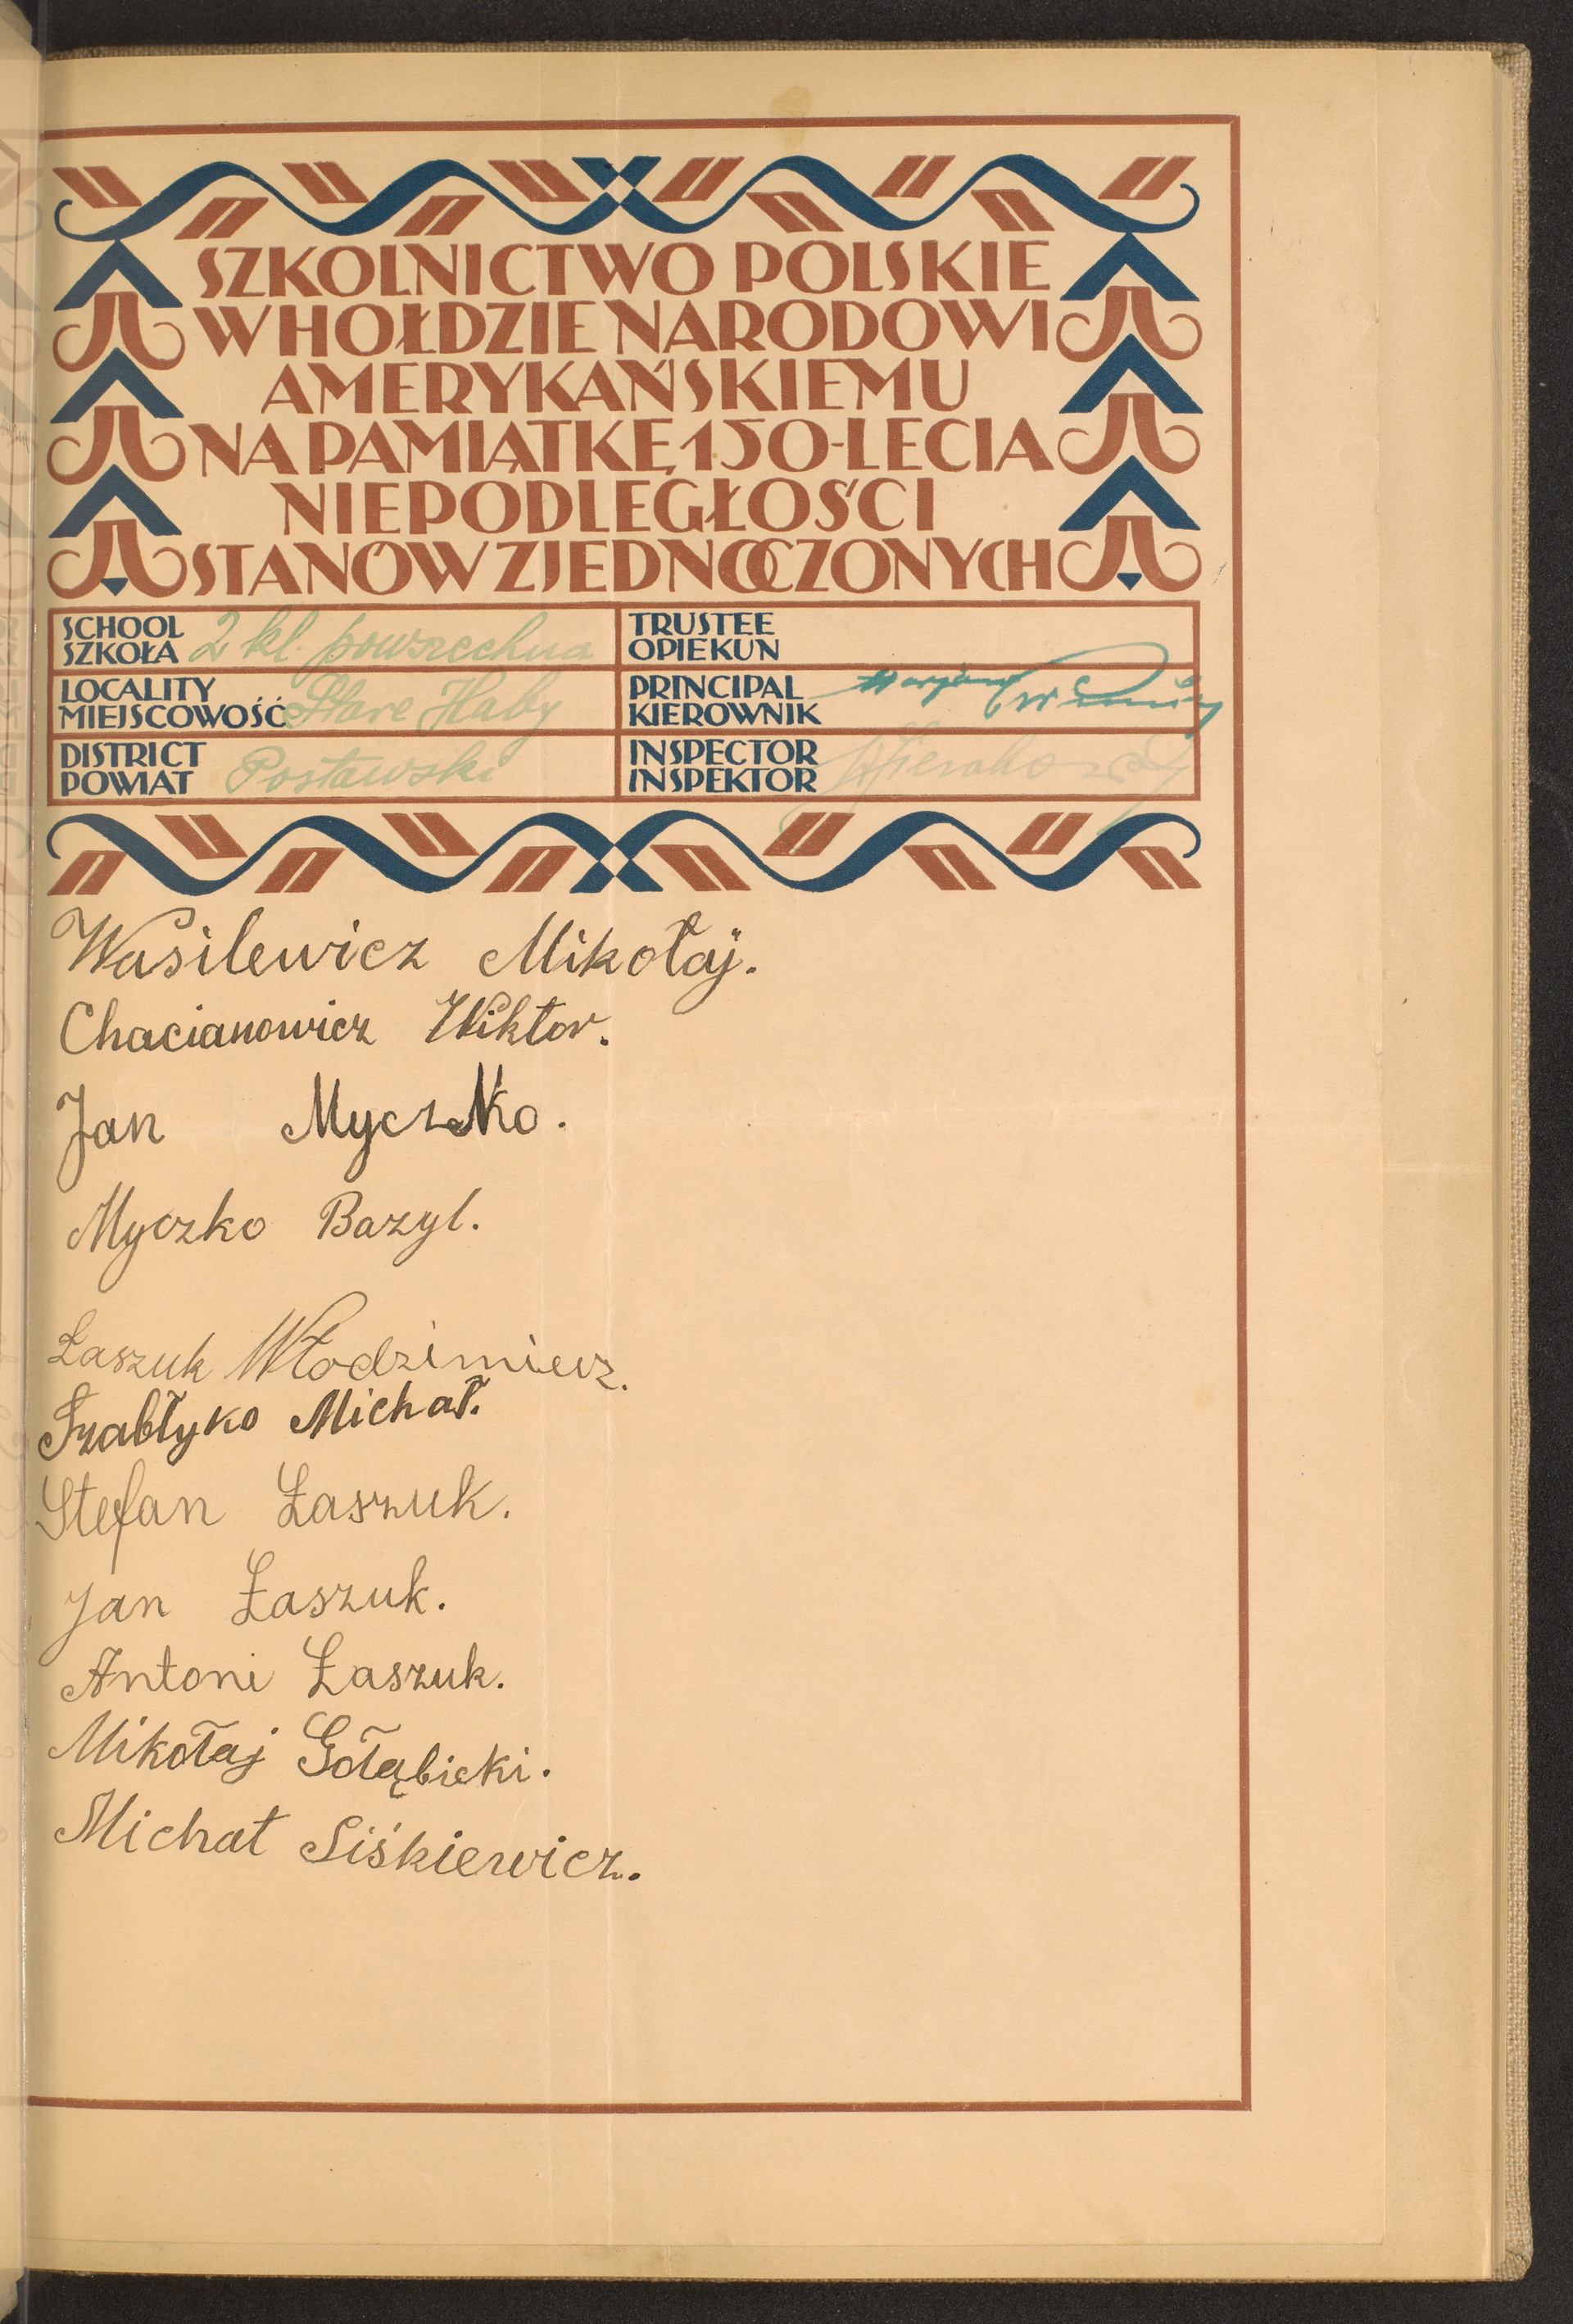 SZKOLNICTWO POLSKIE
W HOŁDZIE NARODOWI
AMERYKAŃSKIEMU
NA PAMIĄTKĘ 150-LECIA
NIEPODLEGŁOŚCI
STANÓW ZJEDNOCZONYCH
SCHOOL
SZKOŁA 2 kl. powszechna
LOCALITY
MIEJSCOWOŚĆ Stare Haby
DISTRICT
POWIAT Postawski
TRUSTEE
OPIEKUN
PRINCIPAL
KIEROWNIK
INSPECTOR
INSPEKTOR
Wasilewicz Mikołaj.
Chacianowicz Wiktor.
Jan Myczko.
Myczko Bazyl.
Łaszuk Włodzimierz.
Szabłyko Michał.
Stefan Łaszuk.
Jan Łaszuk.
Antoni Łaszuk.
Mikołaj Gołąbicki.
Michał Siśkiewicz.